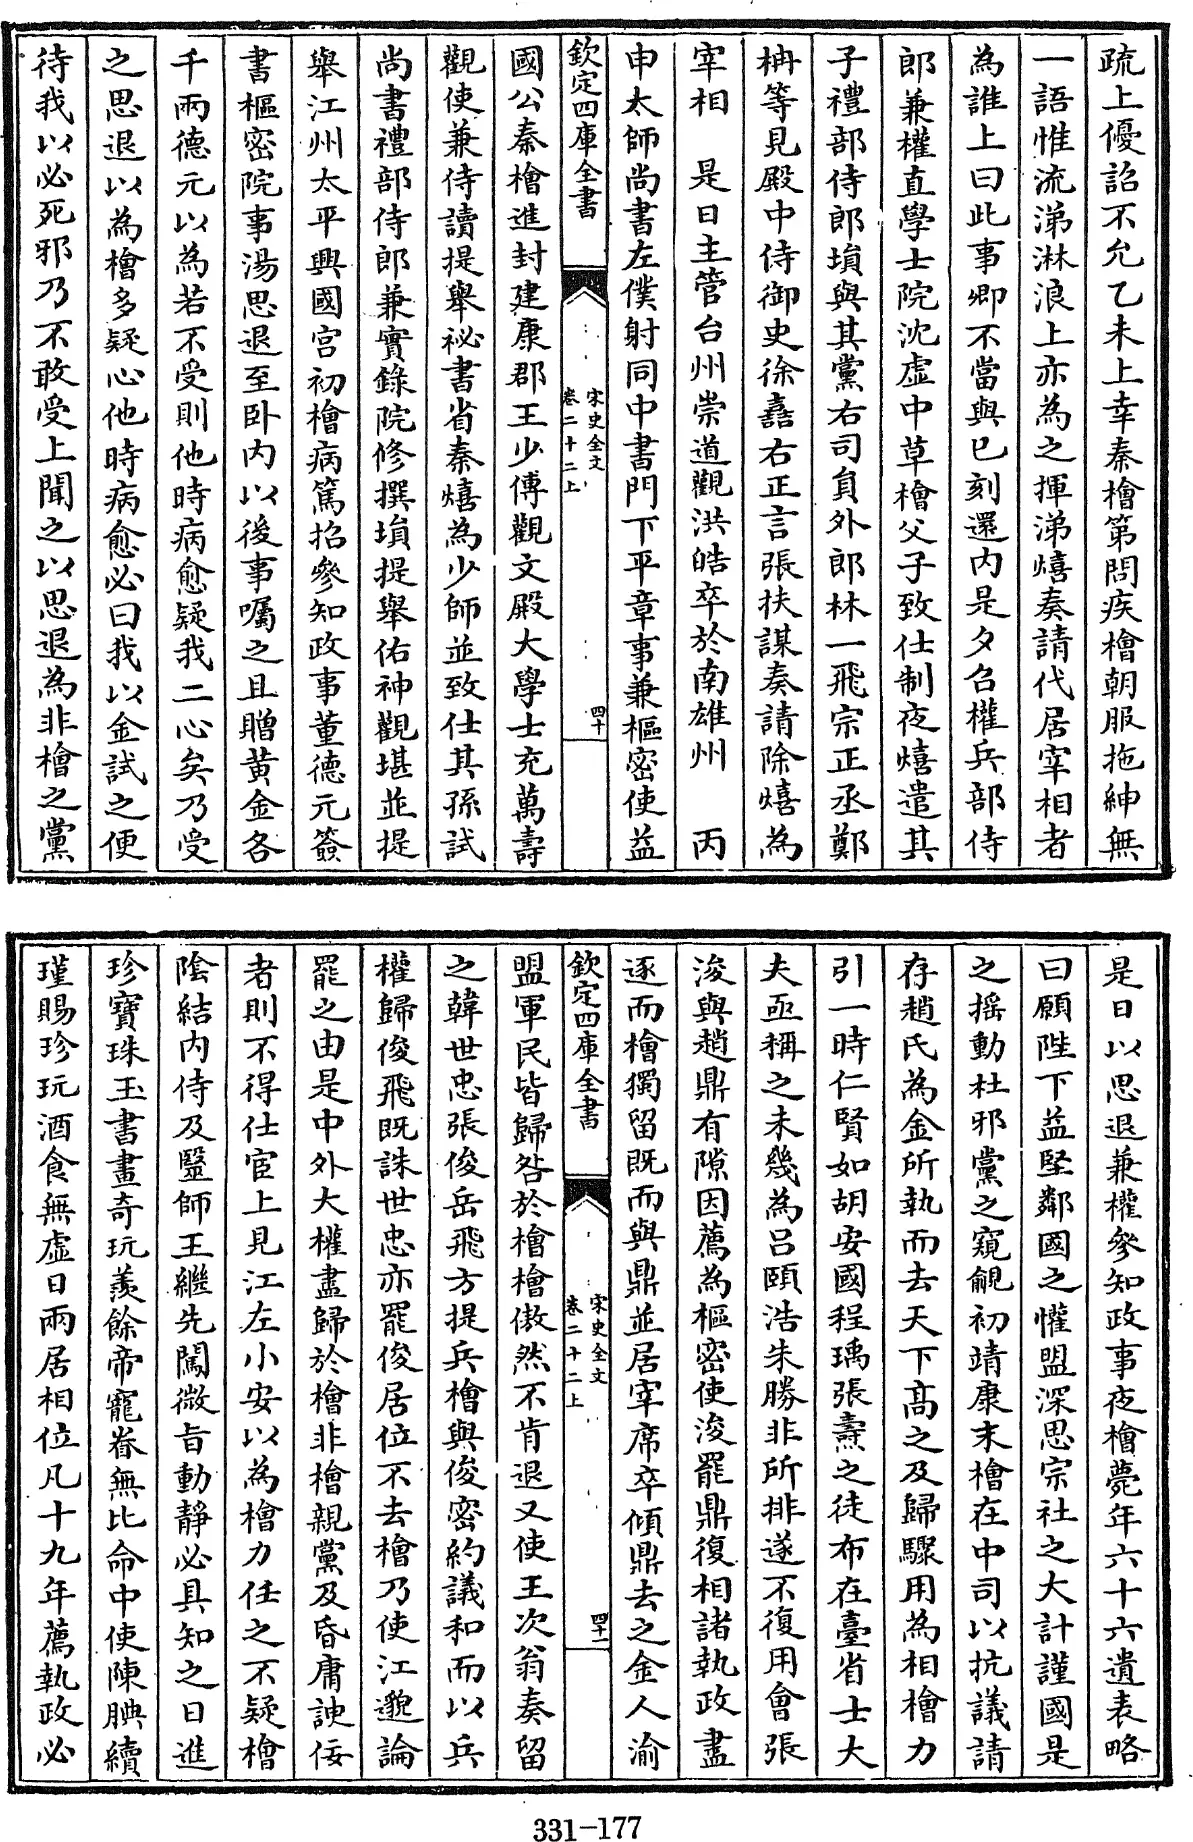 疏上優詔不允乙未上幸秦檜第問疾檜朝服拖紳無
一語惟流涕淋浪上亦為之揮涕熺奏請代居宰相者
為誰上曰此事卿不當與已刻還内是夕召權兵部侍
郎兼權直學士院沈虛中草檜父子致仕制夜熺遣其
子禮部侍郎塤與其黨右司員外郎林一飛宗正丞鄭
柟等見殿中侍御史徐嚞右正言張扶謀奏請除熺為
宰相　是日主管台州崇道觀洪皓卒於南雄州　丙
申太師尚書左僕射同中書門下平章事兼樞密使益
欽定四庫全書
宋史全文
卷二十二上
四十
國公秦檜進封建康郡王少傅觀文殿大學士充萬壽
觀使兼侍讀提舉祕書省秦熺為少師並致仕其孫試
尚書禮部侍郎兼實錄院修撰塤提舉佑神觀堪並提
舉江州太平興國宫初檜病篤招參知政事董德元簽
書樞密院事湯思退至卧内以後事囑之且贈黄金各
千兩德元以為若不受則他時病愈疑我二心矣乃受
之思退以為檜多疑心他時病愈必曰我以金試之便
待我以必死邪乃不敢受上聞之以思退為非檜之黨
是日以思退兼權參知政事夜檜薨年六十六遺表略
曰願陛下益堅鄰國之懽盟深思宗社之大計謹國是
之揺動杜邪黨之窺覦初靖康末檜在中司以抗議請
存趙氏為金所執而去天下高之及歸驟用為相檜力
引一時仁賢如胡安國程瑀張燾之徒布在臺省士大
夫亟稱之未幾為吕頤浩朱勝非所排遂不復用會張
浚與趙鼎有隙因薦為樞密使浚罷鼎復相諸執政盡
逐而檜獨留既而與鼎並居宰席卒傾鼎去之金人渝
欽定四庫全書
宋史全文
卷二十二上
四十一
盟軍民皆歸咎於檜檜傲然不肯退又使王次翁奏留
之韓世忠張俊岳飛方提兵檜與俊密約議和而以兵
權歸俊飛既誅世忠亦罷俊居位不去檜乃使江邈論
罷之由是中外大權盡歸於檜非檜親黨及昏庸諛佞
者則不得仕宦上見江左小安以為檜力任之不疑檜
陰結内侍及毉師王繼先闖微旨動静必具知之日進
珍寶珠玉書畫奇玩羨餘帝寵眷無比命中使陳腆續
瑾賜珍玩酒食無虛日兩居相位凡十九年薦執政必
331-177